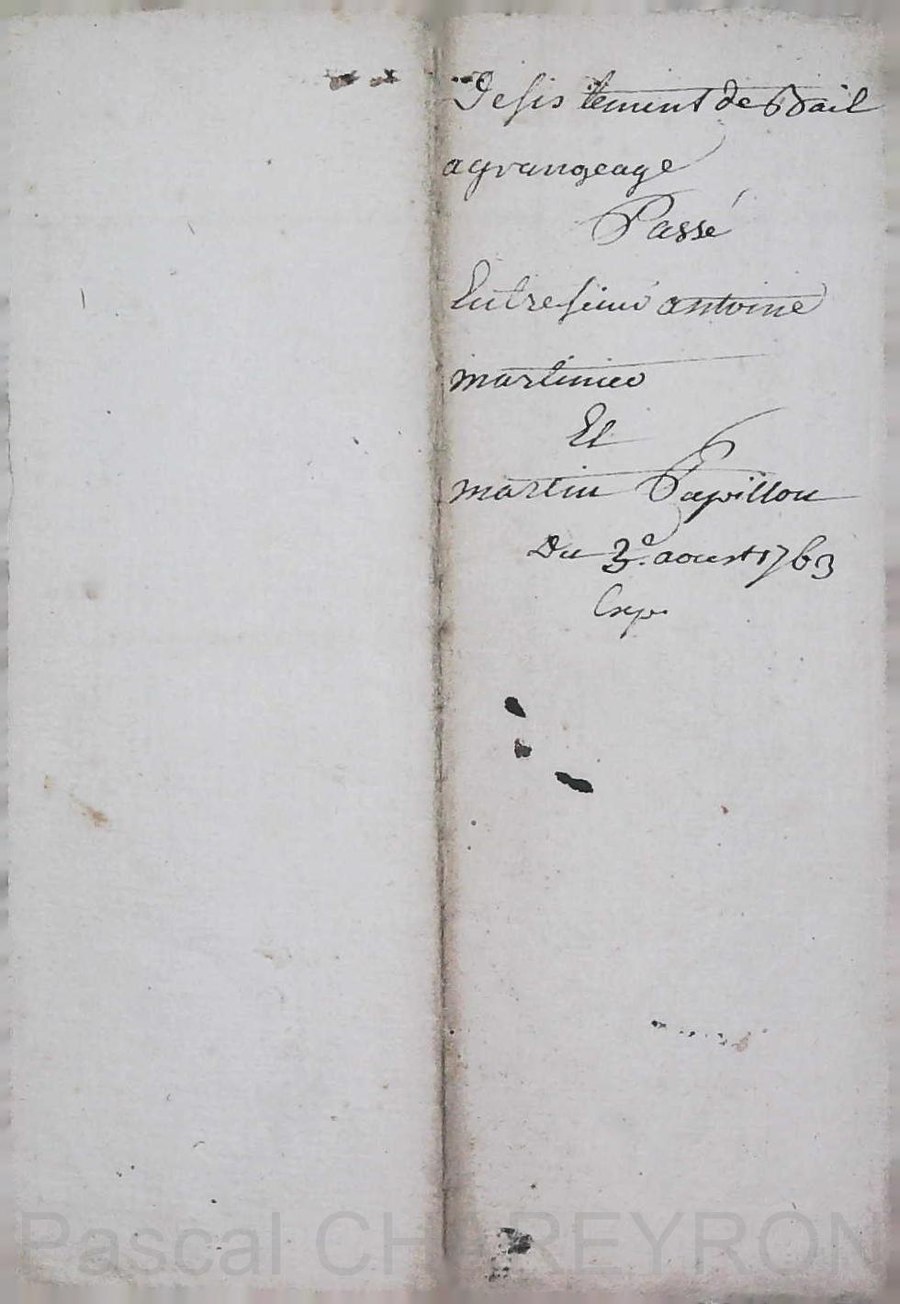 Desistement de Bail
agrangeage
Passé
Entre sieur antoine
martinier
Et
martin Papillon
Du 3e. aoust 1763
Exp
Pascal CHAREYRON